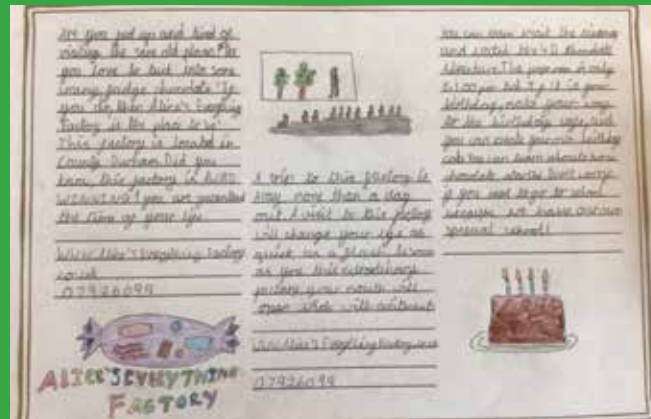 Are you fed up and tired of
visiting the same old places? Do
you love to tuck into some
creamy, fudge chocolate? If
you do, then Alice's Everything
Factory is the place to be!
This factory is located in
County Durham. Did you
know, this factory is AWARD
WINNING? you are guaranteed
the time of your life.
www.Alice'sEverythingFactory
.co.uk
07926099
ALICE'S EVRYTHING
FACTORY
A trip to this factory is
way more than a day
out. A visit to this factory
will change your life as
quick as a flash. As soon
as you
your mouth will
open wide with
www.Alice'sEverythingFactory.co.uk
07926099
You can even visit the cinema
and watch the 4D chocolate
adventure. The popcorn is only
£1.00 per tub. If it is your
birthday, make your way
to the birthday cafe, and
you can create your own birthday
cake. You can learn about how
chocolate started. Don't worry
if you need to go to school
because we have our own
special school!